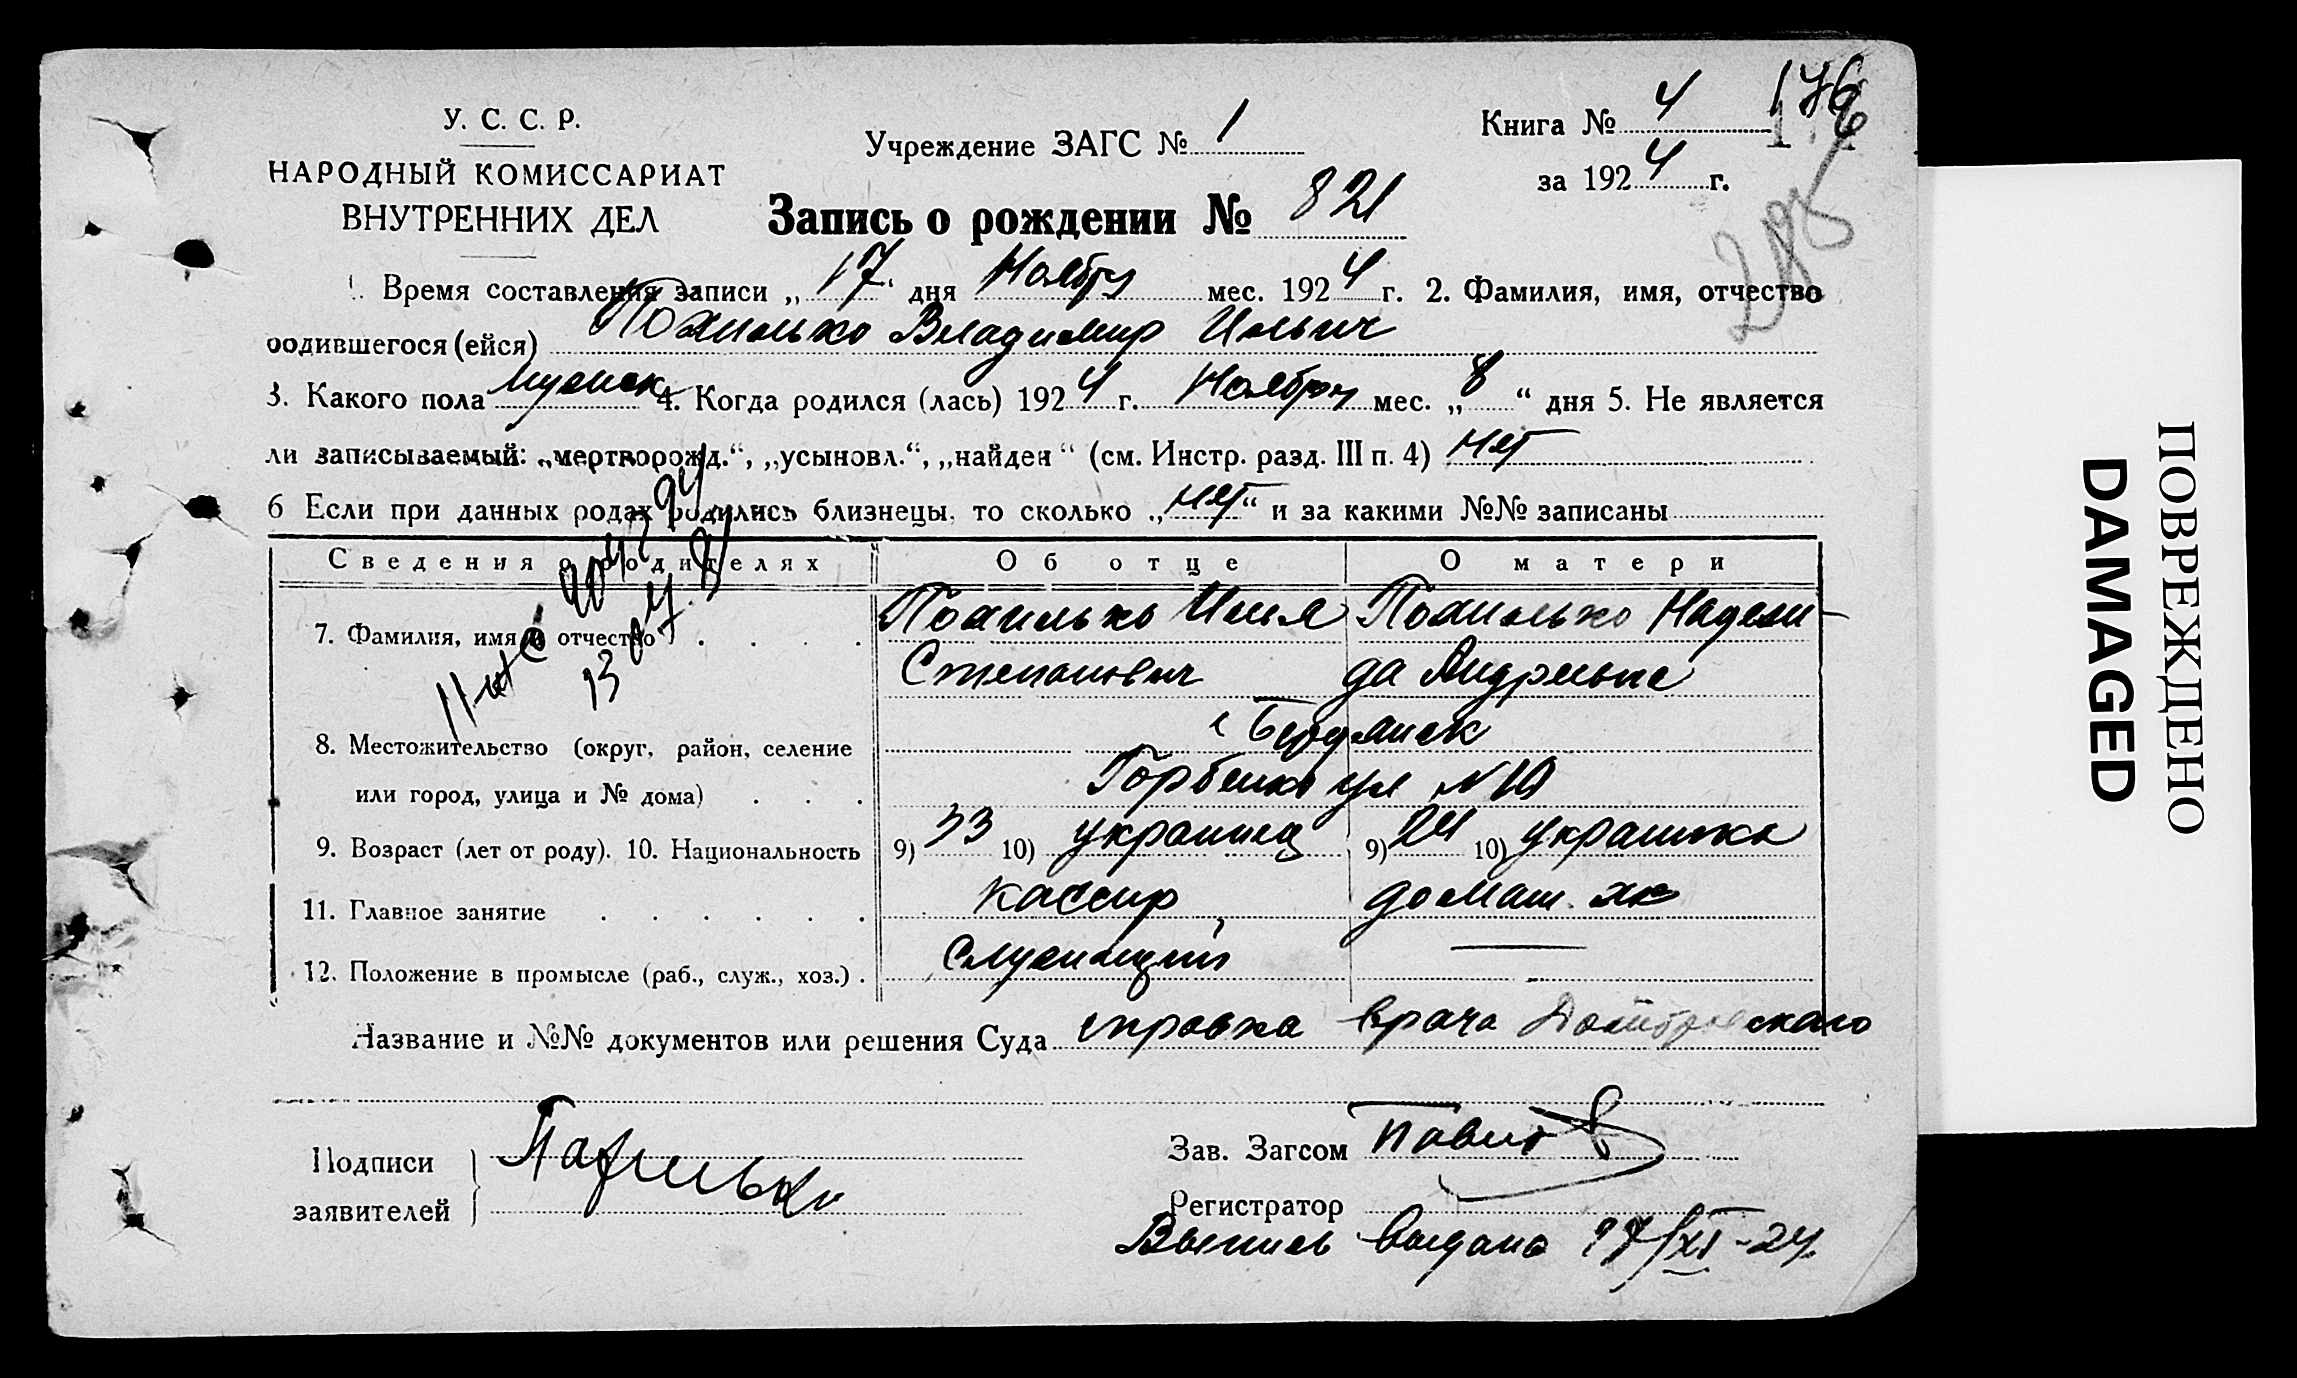 У. С. С. Р.
НАРОДНЫЙ КОМИССАРИАТ
ВНУТРЕННИХ ДЕЛ
Учреждение ЗАГС № 1
Книга № 4 176
за 1924 г.
Запись о рождении № 821
1. Время составления записи „17“ дня Ноября мес. 1924 г. 2. Фамилия, имя, отчество
родившегося (ейся) Похилько Владимир Ильич
3. Какого пола мужск 4. Когда родился (лась) 1924 г. Ноября мес. „8“ дня 5. Не является
ли записываемый: „мертворожд.“, „усыновл.“, „найден“ (см. Инстр. разд. III п. 4) нет
6 Если при данных родах родились близнецы, то сколько „нет“ и за какими №№ записаны
Сведения о родителях Об отце О матери
7. Фамилия, имя и отчество Похилько Илья Похилько Надеж-
Степанович да Андреевна
8. Местожительство (округ, район, селение г Бердянск
или город, улица и № дома) Горбенко ул № 10
9. Возраст (лет от роду). 10. Национальность 9) 33 10) украинец 9) 24 10) украинка
11. Главное занятие кассир домаш. хоз
12. Положение в промысле (раб., служ., хоз.) служащий —
Название и №№ документов или решения Суда справка врача
Подписи
заявителей Похилько
Зав. Загсом
Регистратор
Выпись выдана 17/XI-24
ПОВРЕЖДЕНО
DAMAGED